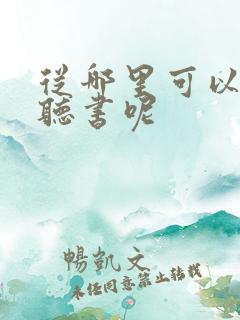 從哪里可以
聽書呢
暢凱文
未任同意禁止轉載